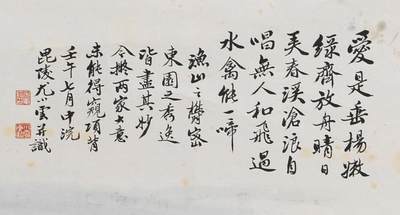 愛是垂楊嫩
綠齊放舟晴日
美春溪滄浪自
唱無人和飛過
水禽能一啼
漁山之欝密
東園之秀逸
皆盡其妙
今擬兩家大意
未能得窺項背
壬午七月中浣
毘陵尤小雲并識